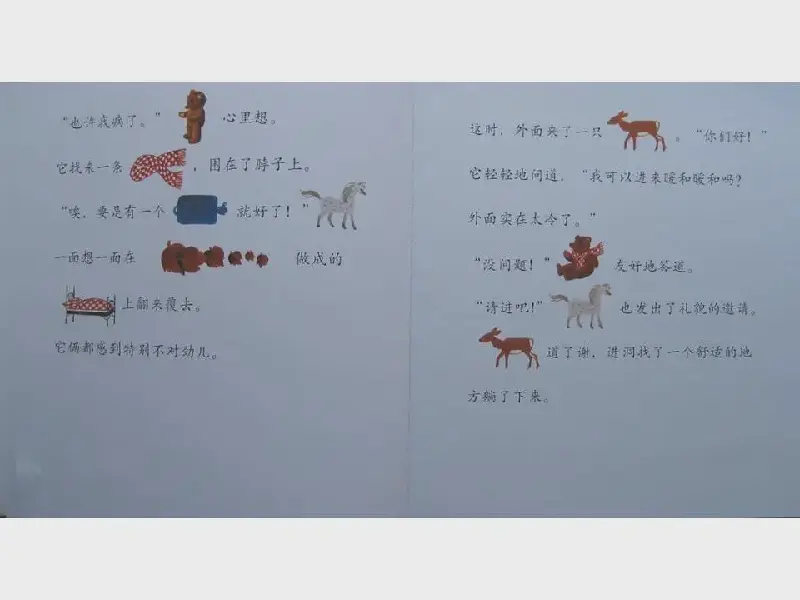 “也许我病了。” 心里想。
它找来一条 ，围在了脖子上。
“唉，要是有一个 就好了！”
一面想一面在 做成的
上翻来覆去。
它俩都感到特别不对劲儿。
这时，外面来了一只 。“你们好！”
它轻轻地问道，“我可以进来暖和暖和吗？
外面实在太冷了。”
“没问题！” 友好地答道。
“请进吧！” 也发出了礼貌的邀请。
道了谢，进洞找了一个舒适的地
方躺了下来。